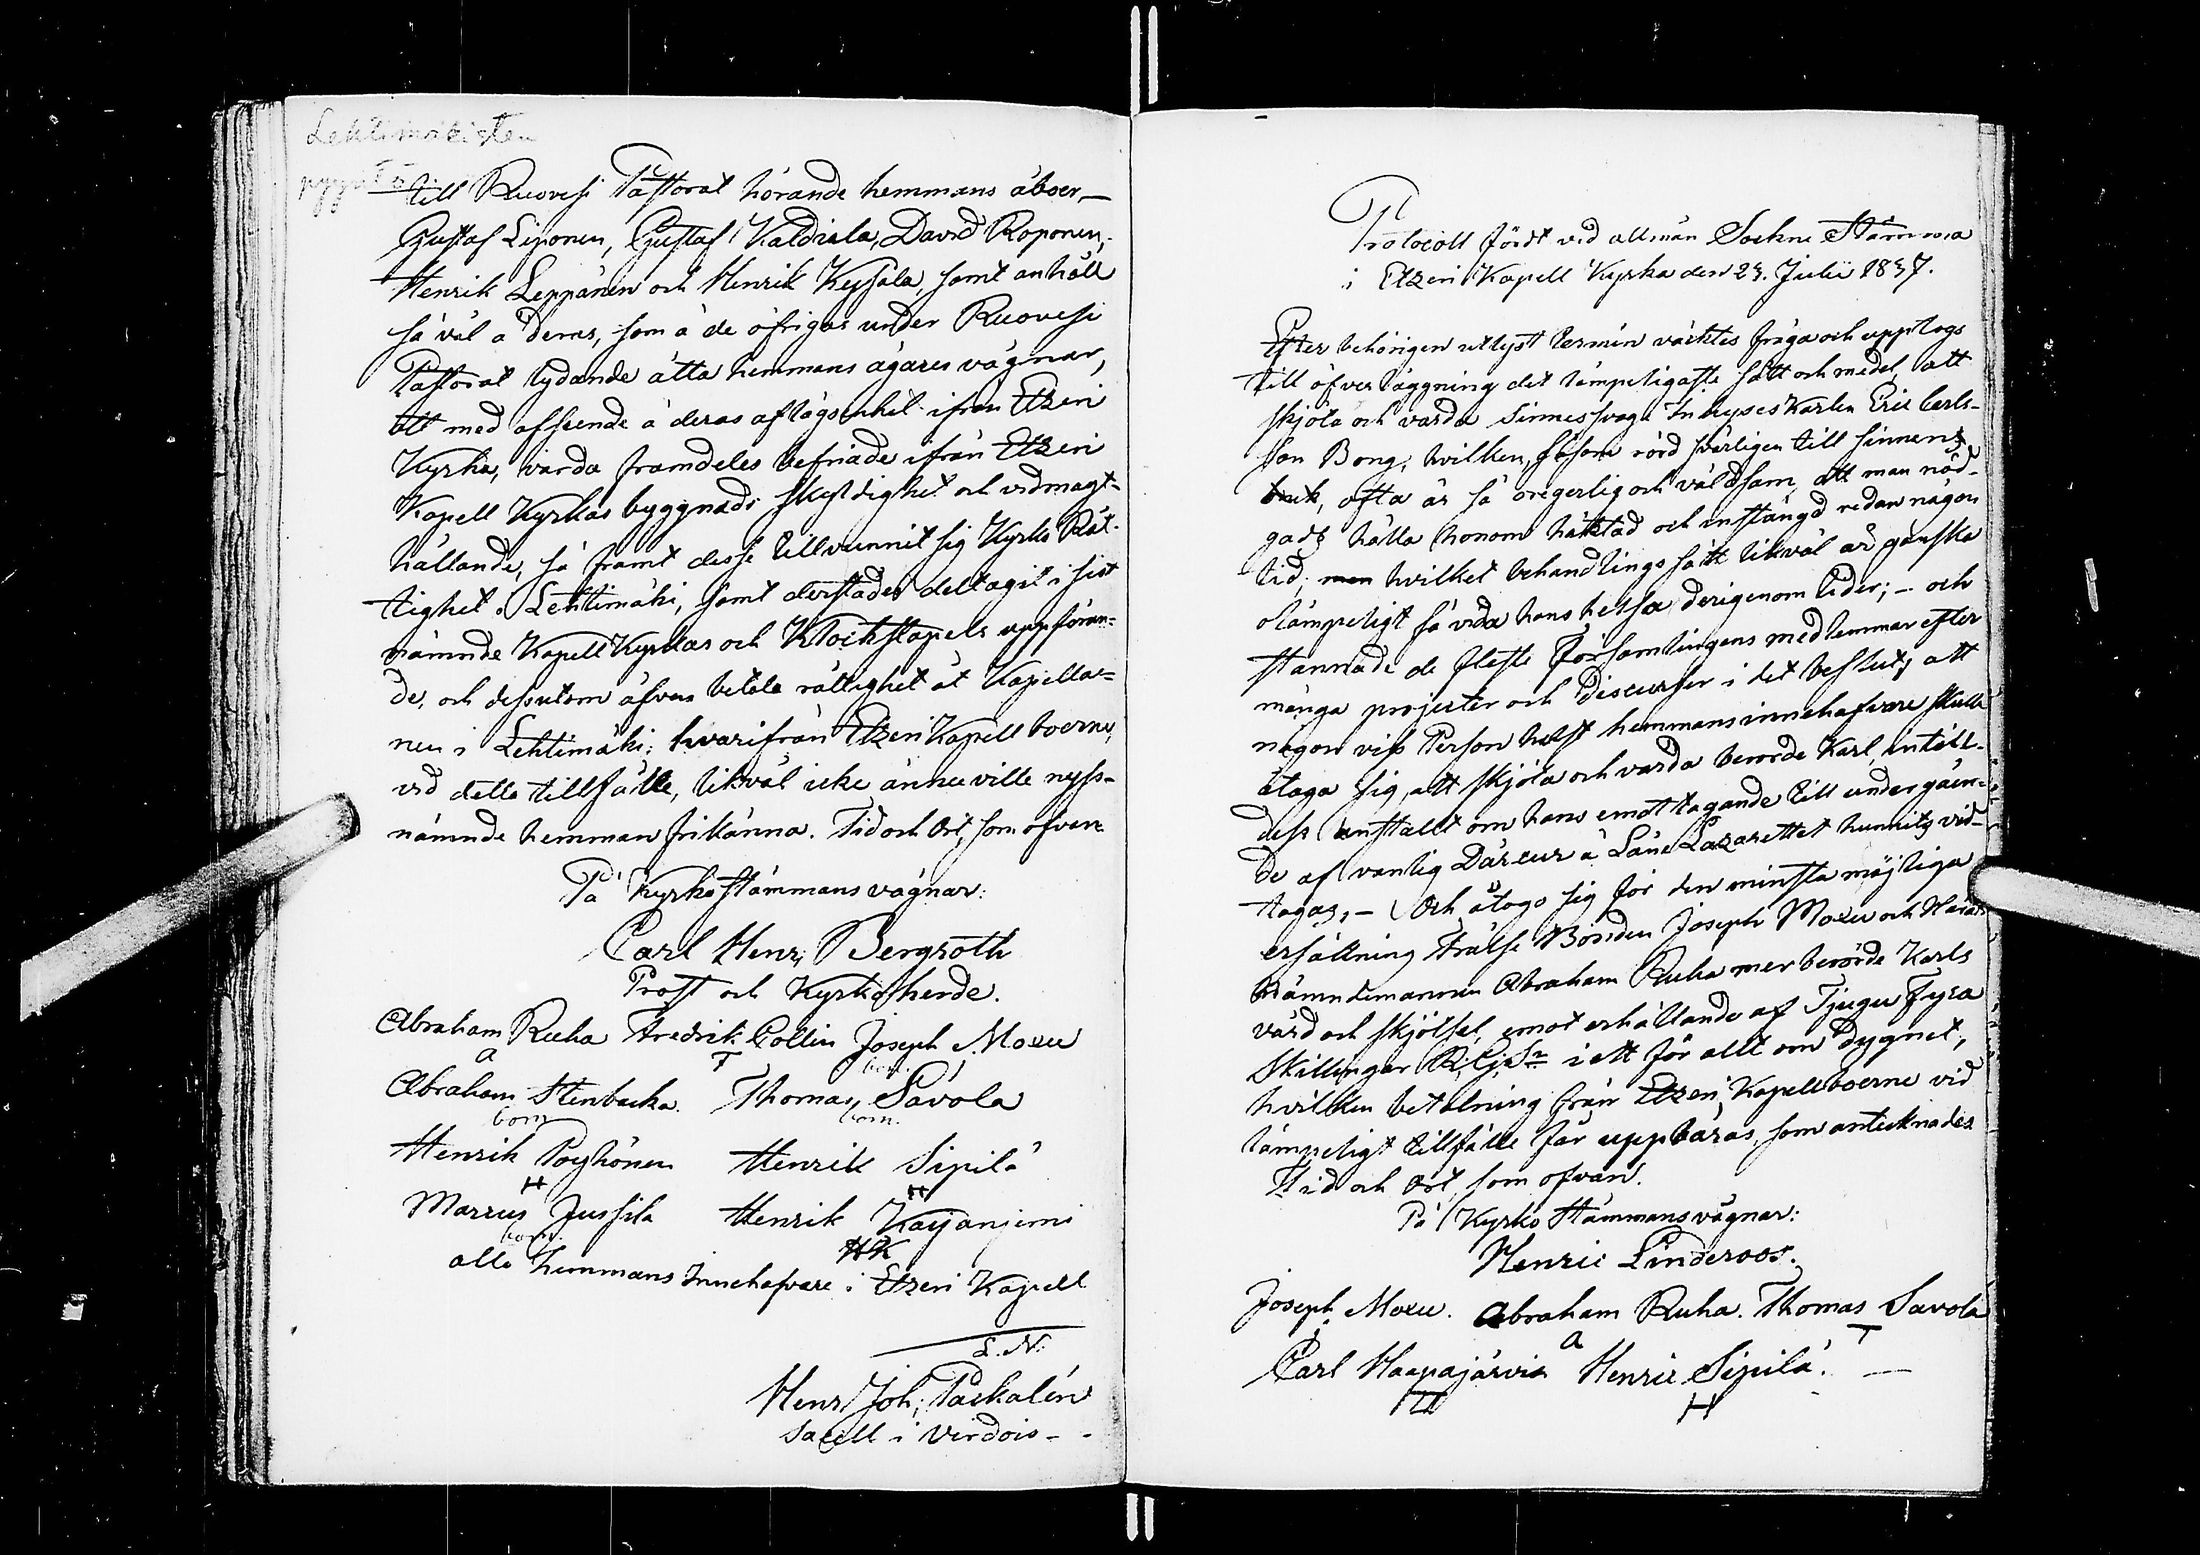 Lehtimäkisten
till Ruovesi Pastorat hörande hemmans åboer
Gustaf Liponen, Gustaf Kaldiala, David Roponen,
Henrik Leppänen och Henrik Keppola, samt anhöll
så väl å deras, som å de öfrigas under Ruovesi
Pastorat lydande åtta hemmans ägares vägnar,
att med afseende å deras aflägsenhet ifrån Etzeri
Kyrka, varda framdeles befriade ifrån Etzeri
Kapell Kyrkas byggnads skyldighet och vidmagt-
hållande, så framt desse tillvunnit sig Kyrko Rät-
tighet i Lehtimäki, samt derstädes deltagit i sist
nämnde Kapell Kyrkas och Klockstapels uppföran-
de, och dessutom äfven betala rättighet åt Kapella-
nen i Lehtimäki; hvarifrån Etzeri Kapell boerne,
vid detta tillfälle, likväl icke ännu ville nyss-
nämnde hemman frikänna. Tid och Ort, som ofvan
På Kyrkostämmans vägnar:
Carl Henr. Bergroth
Prost och Kyrkoherde.
Abraham Ruha Fredrik Collin Joseph Moxu
A T bom.
Abraham Stenbacka. Thomas Savola
bom bom.
Henrik Pöyhönen Henrik Sipilä
H H
Marcus Jussila Henrik Kaijanjemi
bom. HK
alla hemmans Innehafvare i Etzeri Kapell
L. N.
Henr Joh. Paskalén
Sacell i Virdois
Protocoll fördt vid allmän Sockne Stämma
i Etzeri Kapell Kyrka den 23. Julii 1837.
Efter behörigen utlyst termin väcktes fråga och upptogs
till öfverläggning det lämpeligaste sätt och medel, att
skjöta och vårda Sinnessvaga Inhyses Karlen Eric Carls-
son Bong, hvilken, såsom rörd svårligen till sinnens
bruk, ofta är så oregerlig och våldsam, att man nöd-
gats hålla honom häktad och instängd redan någon
tid; men hvilket behandlings sätt likväl är ganska
olämpeligt så vida hans helsa derigenom lider; - och
stannade de fleste församlingens medlemmar efter
många projecter och Discurser i det beslut, att
någon viss Person helst hemmansinnehafvare skulle
åtaga sig, att skjöta och vårda berörde Karl, intill-
dess anstallt om hans emottagande till undergåen-
de af vanlig Dårcur å Läne Lazarettet hunnits vid-
tagas, - Och åtogo sig för den minsta möjliga
ersättning Frälse Bonden Joseph Moxu och Härads
Nämndemannen Abraham Ruha mer berörde Karls
vård och skjötsel, emot erhållande af Tjugu Fyra
Skillingar R. Gs. Sr i ett för allt om Dygnet,
hvilken betalning från Etzeri Kapellboerne vid
lämpeligt tillfälle får uppbäras, som antecknades
Tid och Ort, som ofvan.
På Kyrko Stämmans vägnar:
Henric Linderoos.
Joseph Moxu. Abraham Ruha. Thomas Savola
A T
Carl Haapajärvi Henric Sipilä.
H